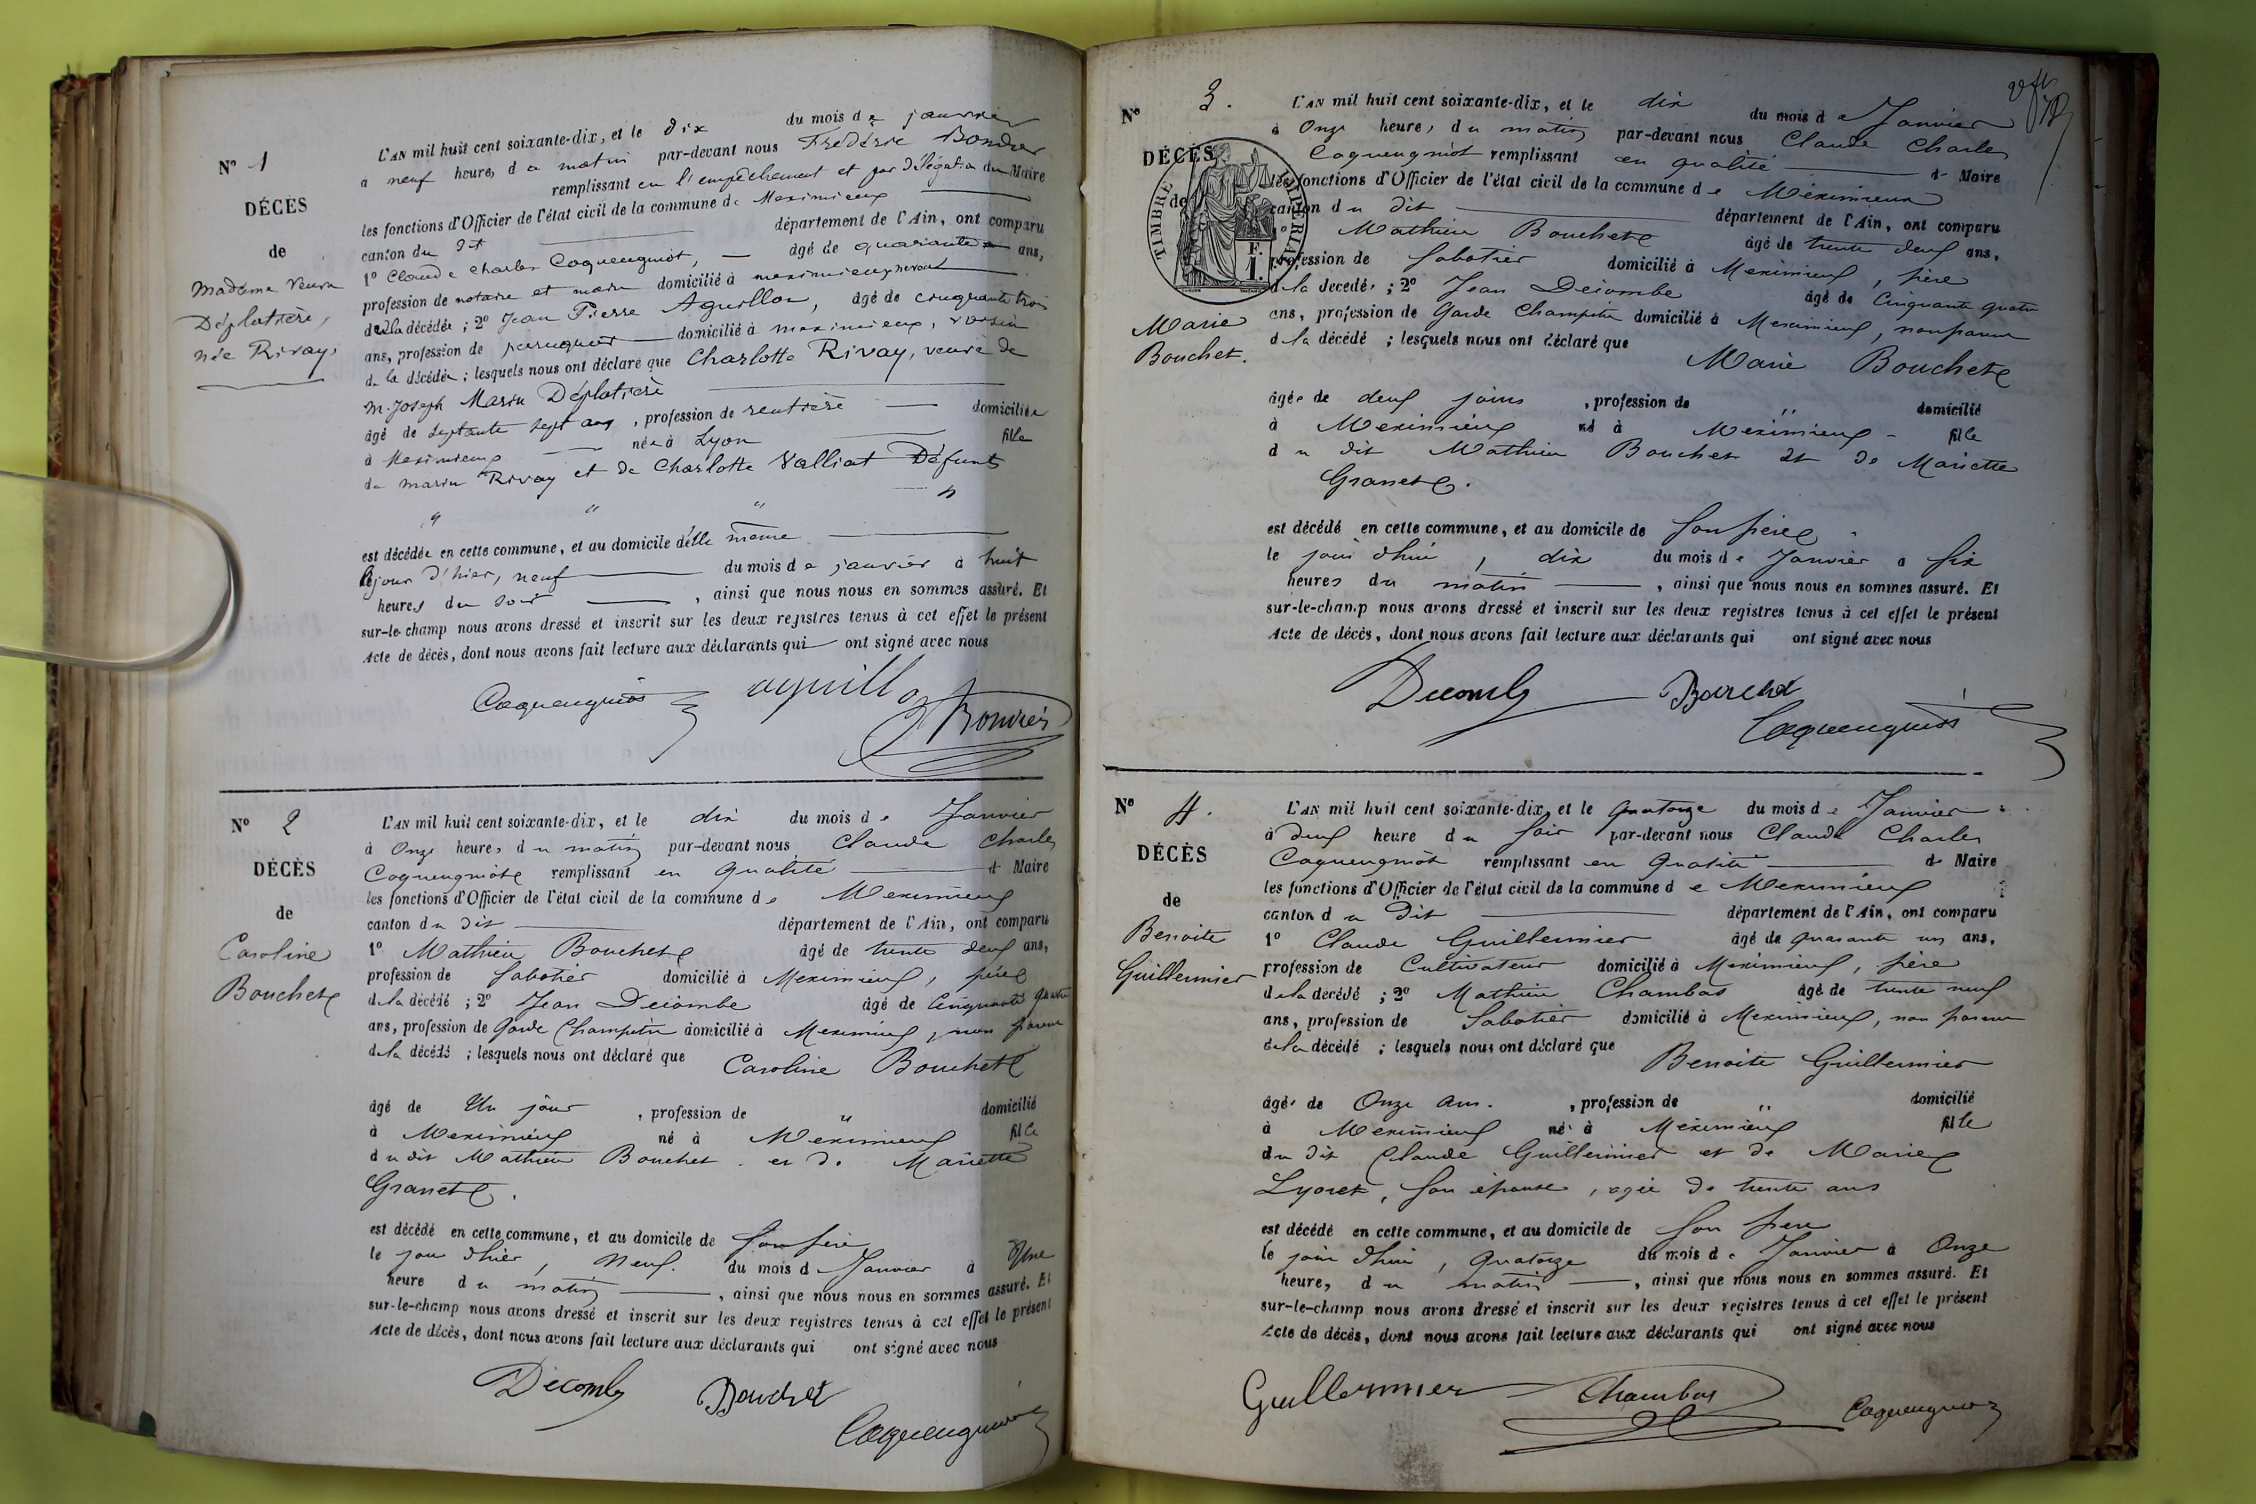 N° 1
DÉCÈS
de
Madame Veuve
Déplatière,
née Rivay.
L'AN mil huit cent soixante-dix, et le dix du mois de janvier
à neuf heures du matin par-devant nous Frédéric Bondier
remplissant en l'empêchement et par délégation du Maire
les fonctions d'Officier de l'état civil de la commune de Meximieux
canton du dit département de l'Ain, ont comparu
1° Claude Charles Coquengniot, âgé de quarante ans,
profession de notaire et maire domicilié à meximieux
de la décédée ; 2° Jean Pierre Aguillon, âgé de cinquante trois
ans, profession de domicilié à meximieux, voisin
de la décédée ; lesquels nous ont déclaré que Charlotte Rivay, veuve de
M. Joseph Marin Déplatière
âgé de septante sept ans, profession de rentière domiciliée
à Meximieux née à Lyon fille
de marin Rivay et de Charlotte Valliat Défunts
" " " "
est décédée en cette commune, et au domicile d'elle même
le jour d'hier, neuf du mois de janvier à huit
heures du soir, ainsi que nous nous en sommes assuré. Et
sur-le-champ nous avons dressé et inscrit sur les deux registres tenus à cet effet le présent
Acte de décès, dont nous avons fait lecture aux déclarants qui ont signé avec nous
Coquengniot aguillon
N° 2
DÉCÈS
de
Caroline
Bouchet
L'AN mil huit cent soixante-dix, et le dix du mois de Janvier
à Onze heures du matin par-devant nous Claude Charles
Coquengniot remplissant en qualité de Maire
les fonctions d'Officier de l'état civil de la commune de Meximieux
canton du dit département de l'Ain, ont comparu
1° Mathieu Bouchet âgé de trente deux ans,
profession de Sabotier domicilié à Meximieux, père
de la décédé ; 2° Jean Décombe âgé de Cinquante quatre
ans, profession de Garde Champêtre domicilié à Meximieux, non parent
de la décédé ; lesquels nous ont déclaré que Caroline Bouchet
âgé de Un jour, profession de " domicilié
à Meximieux né à Meximieux fille
du dit Mathieu Bouchet et de Mariette
Granet.
est décédé en cette commune, et au domicile de son père
le jour d'hier, Neuf du mois de Janvier à Onze
heure du matin, ainsi que nous nous en sommes assuré. Et
sur-le-champ nous avons dressé et inscrit sur les deux registres tenus à cet effet le présent
Acte de décès, dont nous avons fait lecture aux déclarants qui ont signé avec nous
Décombe Bouchet
Coquengniot
N° 3.
DÉCÈS
de
Marie
Bouchet.
TIMBRE IMPÉRIAL
F.
1.
L'AN mil huit cent soixante-dix, et le dix du mois de Janvier
à Onze heures du matin par-devant nous Claude Charles
Coquengniot remplissant en qualité de Maire
les fonctions d'Officier de l'état civil de la commune de Meximieux
canton du dit département de l'Ain, ont comparu
1° Mathieu Bouchet âgé de trente deux ans,
profession de Sabotier domicilié à Meximieux, père
de la décédé ; 2° Jean Décombe âgé de Cinquante quatre
ans, profession de Garde Champêtre domicilié à Meximieux, non parent
de la décédé ; lesquels nous ont déclaré que
Marie Bouchet
âgée de deux jours, profession de " domicilié
à Meximieux né à Meximieux fille
du dit Mathieu Bouchet et de Mariette
Granet.
est décédé en cette commune, et au domicile de son père
le jour d'hui, dix du mois de Janvier à six
heures du matin, ainsi que nous nous en sommes assuré. Et
sur-le-champ nous avons dressé et inscrit sur les deux registres tenus à cet effet le présent
Acte de décès, dont nous avons fait lecture aux déclarants qui ont signé avec nous
Décombe Bouchet
Coquengniot
N° 4.
DÉCÈS
de
Benoite
Guillermier
L'AN mil huit cent soixante-dix, et le quatorze du mois de Janvier
à deux heure du soir par-devant nous Claude Charles
Coquengniot remplissant en qualité de Maire
les fonctions d'Officier de l'état civil de la commune de Meximieux
canton du dit département de l'Ain, ont comparu
1° Claude Guillermier âgé de quarante un ans,
profession de Cultivateur domicilié à Meximieux, père
de la décédé ; 2° Mathieu Chambas âgé de trente neuf
ans, profession de Sabotier domicilié à Meximieux, non parent
de la décédé ; lesquels nous ont déclaré que
Benoite Guillermier
âgé de Onze ans., profession de " domicilié
à Meximieux né à Meximieux fille
du dit Claude Guillermier et de Marie
Lyoret, son épouse, agée de trente ans
est décédé en cette commune, et au domicile de son père
le jour d'hui, quatorze du mois de Janvier à Onze
heure, du matin, ainsi que nous nous en sommes assuré. Et
sur-le-champ nous avons dressé et inscrit sur les deux registres tenus à cet effet le présent
Acte de décès, dont nous avons fait lecture aux déclarants qui ont signé avec nous
Guillermier Chambas Coquengniot